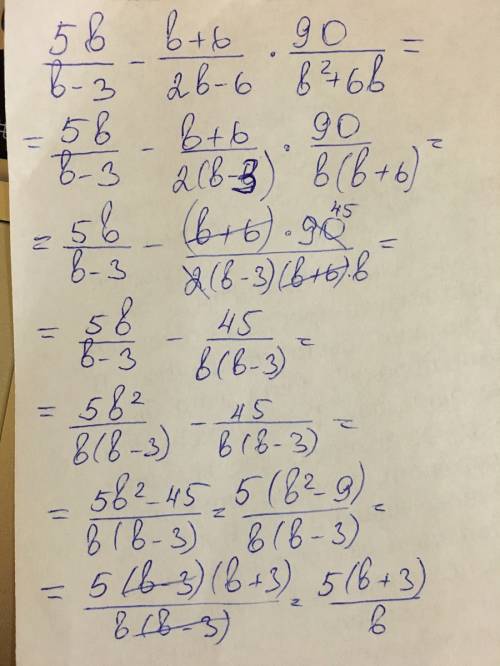 5b/(b-3) - (b+6)/(2b-6) · 90/(b²+6b) =
= 5b/(b-3) - (b+6)/(2(b-3)) · 90/(b(b+6)) =
= 5b/(b-3) - ((b+6)·90 45)/(2(b-3)(b+6)·b) =
= 5b/(b-3) - 45/(b(b-3)) =
= 5b²/(b(b-3)) - 45/(b(b-3)) =
= (5b²-45)/(b(b-3)) = 5(b²-9)/(b(b-3)) =
= 5(b-3)(b+3)/(b(b-3)) = 5(b+3)/b